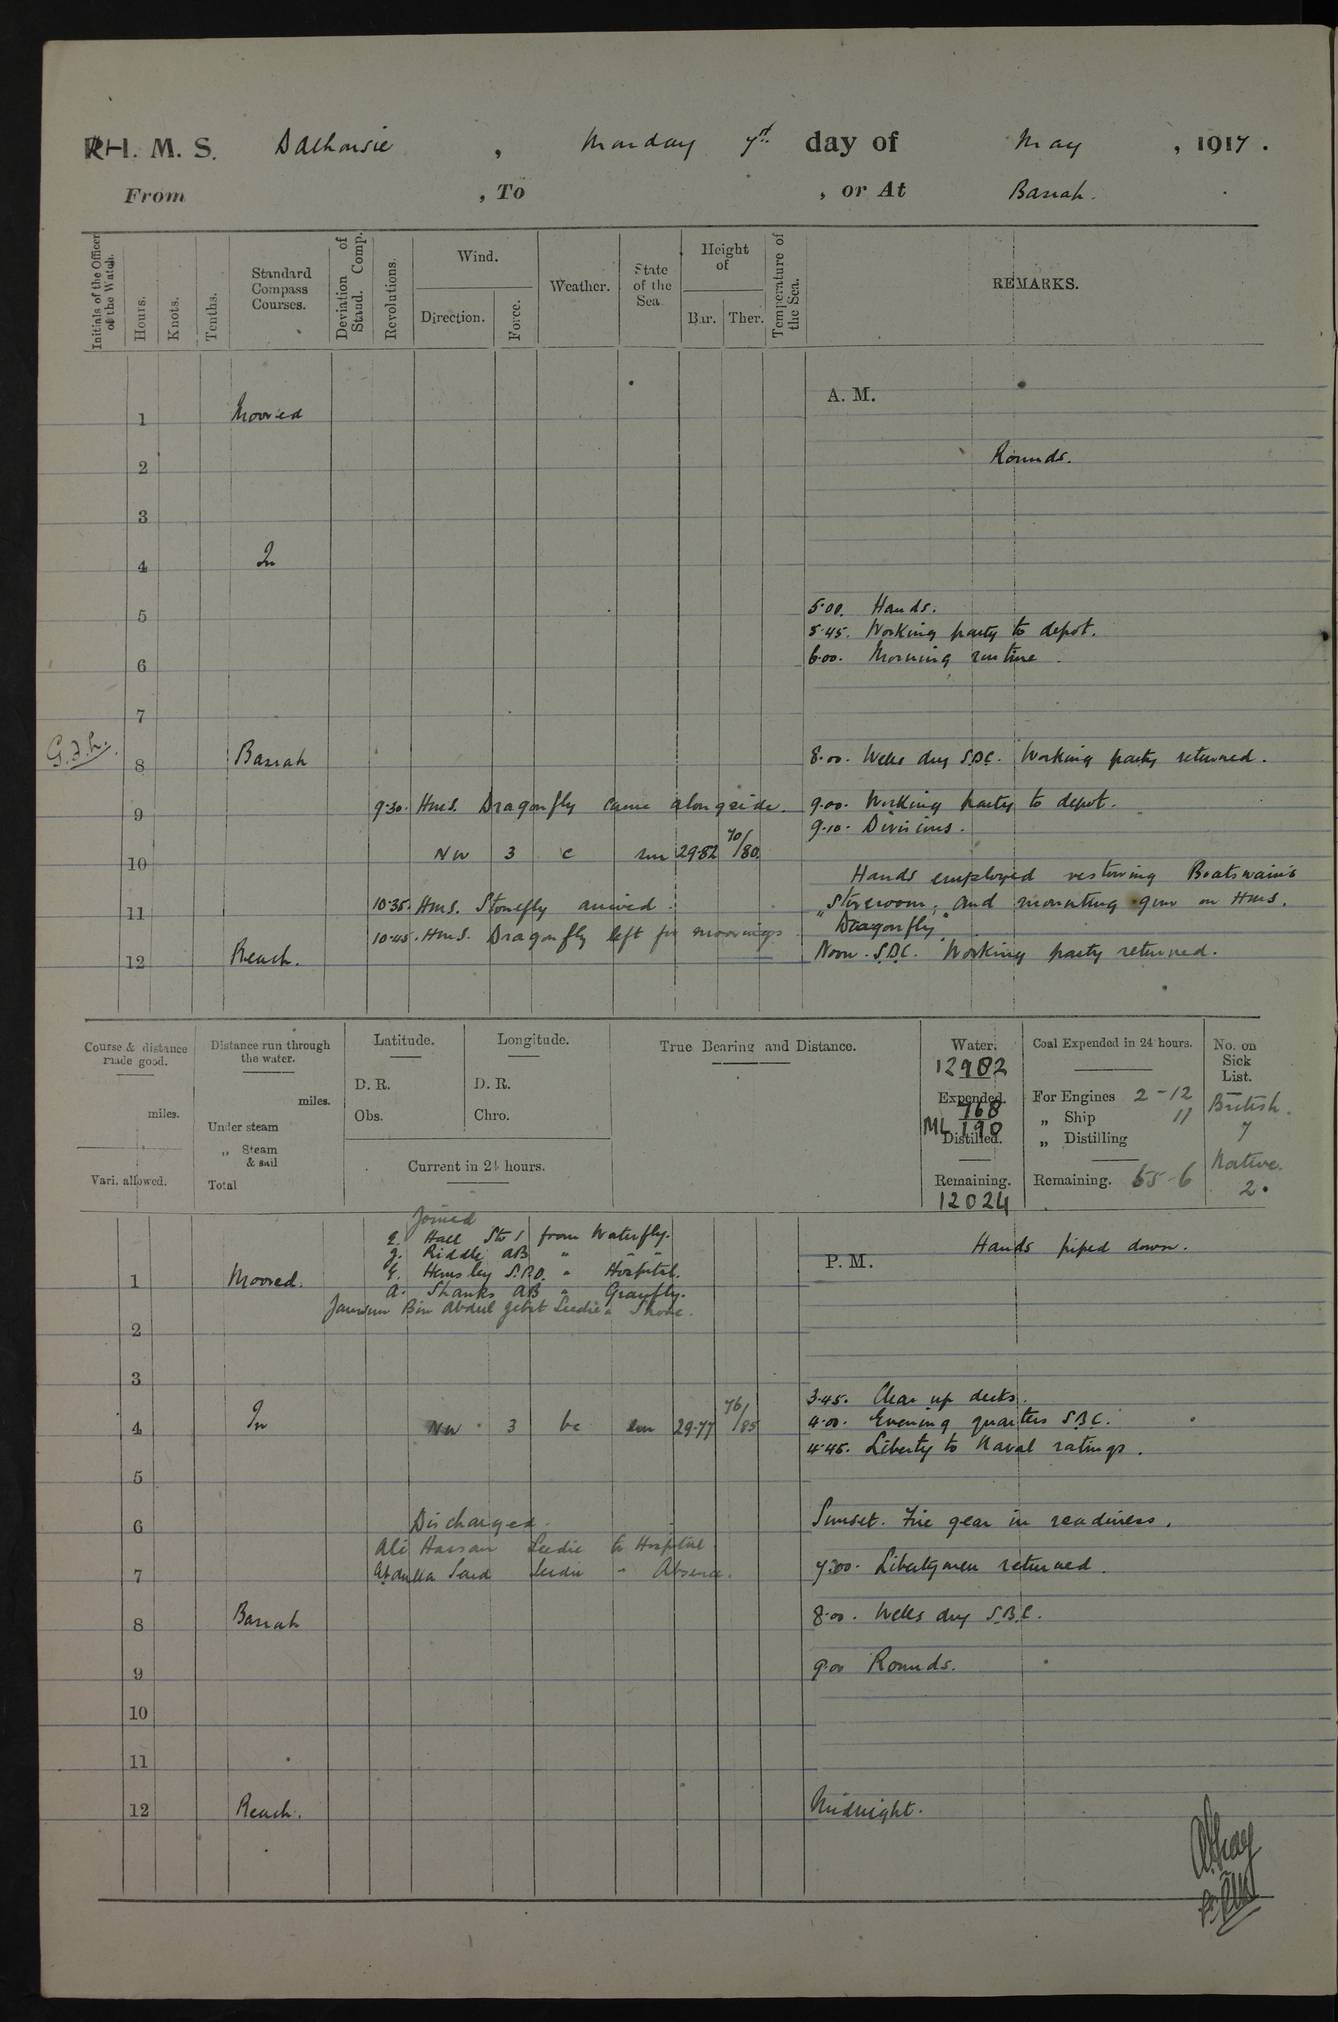 R.H. M. S. Dalhousie, Monday 7th day of May, 1917.
From , To , or At Basrah.
Initials of the Officer of the Watch.
Hours.
Knots.
Tenths.
Standard Compass Courses.
Deviation of Stand. Comp.
Revolutions.
Wind.
Direction.
Force.
Weather.
State of the Sea
Height of
Bar.
Ther.
Temperature of the Sea.
REMARKS.
A. M.
1 Moored
2 Rounds.
3
4 In
5 5.00. Hands.
5.45. Working party to depot.
6 6.00. Morning routine.
7
8 Basrah 8.00. Wells dry S.B.C. Working party returned.
9 9.30. H.M.S. Dragonfly came alongside. 9.00. Working party to depot.
9.10. Divisions.
10 NW 3 c sm 29.82 70/80
Hands employed restowing Boatswain's
11 10.35. H.M.S. Stonefly arrived. Storeroom, and mounting gun on H.M.S.
10.45. H.M.S. Dragonfly left for moorings "Dragonfly"
12 Reach. Noon. S.B.C. Working party returned.
Course & distance made good.
miles.
Vari. allowed.
Distance run through the water.
miles.
Under steam
„ Steam & sail
Total
Latitude.
D. R.
Obs.
Longitude.
D. R.
Chro.
Current in 24 hours.
True Bearing and Distance.
Water.
12982
Expended.
768
ML 190
Distilled.
Remaining.
12024
Coal Expended in 24 hours.
For Engines 2-12
„ Ship 11
„ Distilling
Remaining. 65-6
No. on Sick List.
British.
7
Native.
2.
Joined
E. Hall Sto 1 from Waterfly.
J. Riddle AB " "
E. Hemsley S.P.O. " Hospital.
A. Shanks AB " Grayfly.
Bin Abdul Seedie " Shore.
P. M.
Hands piped down.
1 Moored.
2
3
3.45. Clear up decks.
4 In NW 3 bc sm 29.77 76/85 4.00. Evening quarters S.B.C.
4.45. Liberty to Naval ratings.
5
6 Discharged. Sunset. Fire gear in readiness.
Ali Hassan Seedie to Hospital
7 Abdulla Said Seedie " Absence. 7.00. Libertymen returned.
8 Basrah 8.00. Wells dry S.B.C.
9 9.00 Rounds.
10
11
12 Reach. Midnight.